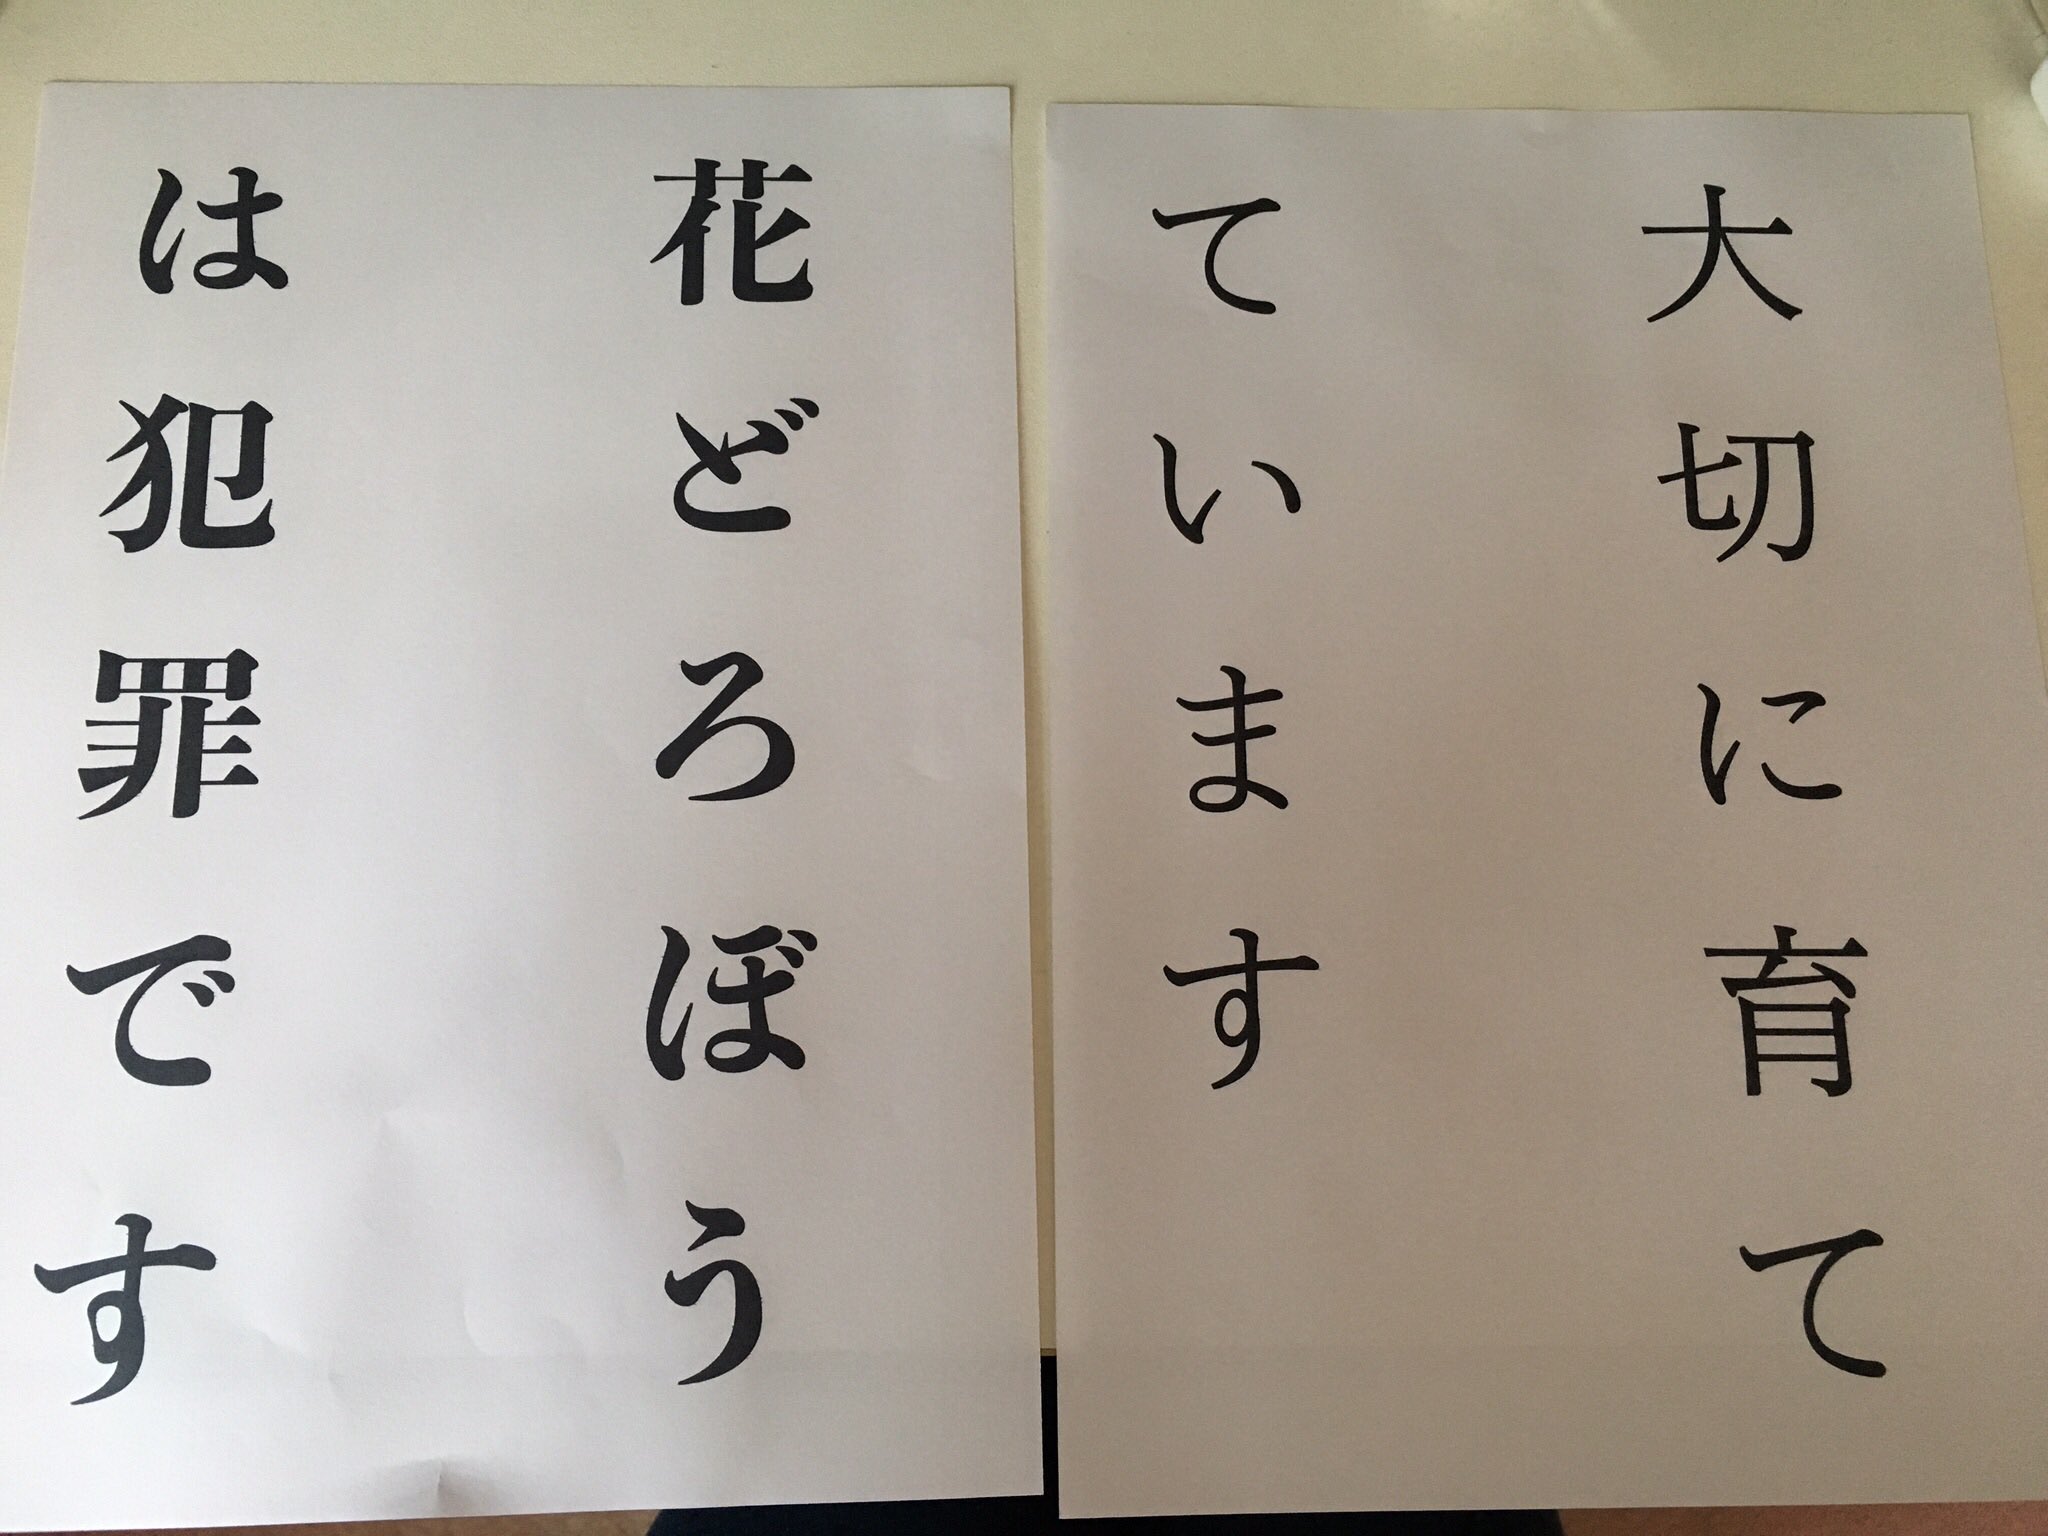 大切に育て
ています
花どろぼう
は犯罪です